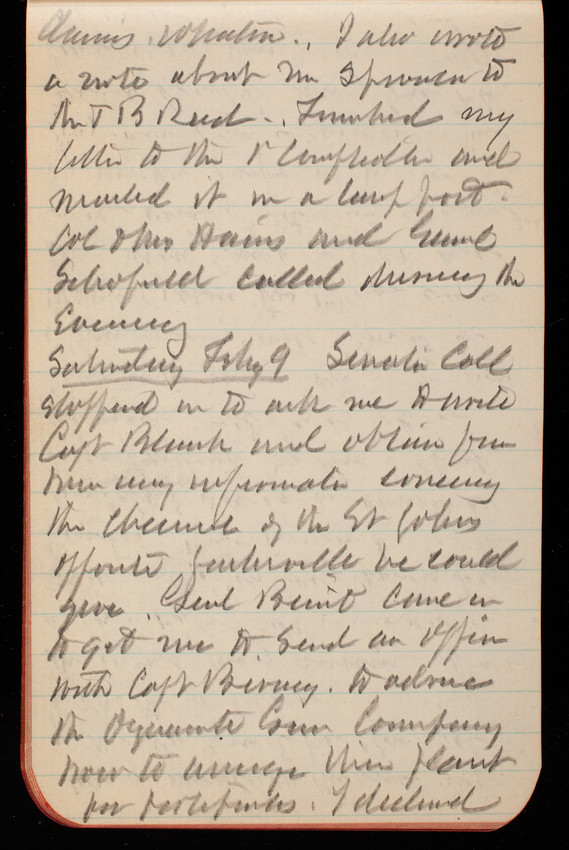 I also wrote
a note about
the T B Reed. Finished my
letter to the Comptroller and
mailed it in a lamp post.
Col & Mrs Hains and Genl
Schofield called during the
Evening
Saturday Feby 9 Senator Call
stopped in to ask me to write
Capt Black and obtain from
him any information concerning
the channel of the St Johns
opposite Jacksonville he could
give. Genl Benét came in
to get me to send an officer
with Capt Birney. to advise
the Dynamite Gun Company
how to arrange their plant
for I declined